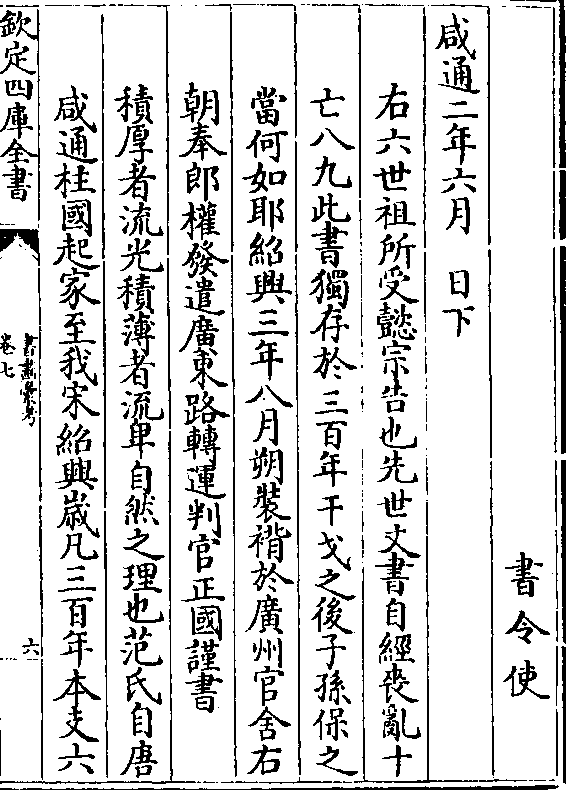 書令使
咸通二年六月　日下
右六世祖所受懿宗告也先世文書自經喪亂十
亡八九此書獨存於三百年干戈之後子孫保之
當何如耶紹興三年八月朔裝褙於廣州官舍右
朝奉郎權發遣廣東路轉運判官正國謹書
積厚者流光積薄者流卑自然之理也范氏自唐
咸通柱國起家至我宋紹興嵗凡三百年本支六
欽定四庫全書
書畫彙考
卷七
六